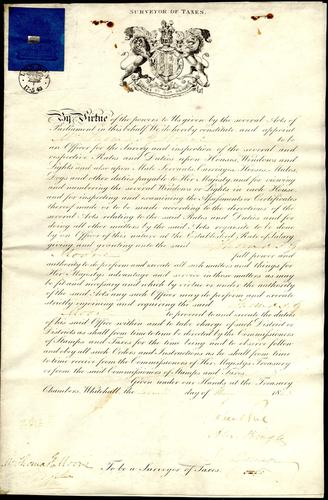 SURVEYOR OF TAXES.
By Virtue of the powers to Us given by the several Acts of
Parliament in this behalf We do hereby constitute and appoint
to be
an Officer for the Survey and inspection of the several and
respective Rates and Duties upon Houses, Windows and
Lights and also upon Male Servants, Carriages, Horses, Mules,
Dogs and other duties payable to Her Majesty, and for viewing
and numbering the several Windows or Lights in each House,
and for inspecting and examining the Assessments or Certificates
thereof made or to be made according to the directions of the
several Acts relating to the said Rates and Duties and for
doing all other matters by the said Acts requisite to be done
by an Officer of this nature at the Established Rate of Salary
giving and granting unto the said
Moore full power and
authority to do perform and execute all such matters and things for
Her Majesty's advantage and service in those matters as may
be fit and necessary and which by virtue or under the authority
of the said Acts any such Officer may do perform and execute
strictly enjoining and requiring the said
Moore to proceed to and execute the duties
of his said Office within and to take charge of such District or
Districts as shall from time to time be directed by the Commissioners
of Stamps and Taxes for the time being and to observe follow
and obey all such Orders and Instructions as he shall from time
to time receive from the Commissioners of Her Majesty's Treasury
or from the said Commissioners of Stamps and Taxes.
Given under our Hands at the Treasury
Chambers, Whitehall, the day of 18
Thomas Moore
To be a Surveyor of Taxes.